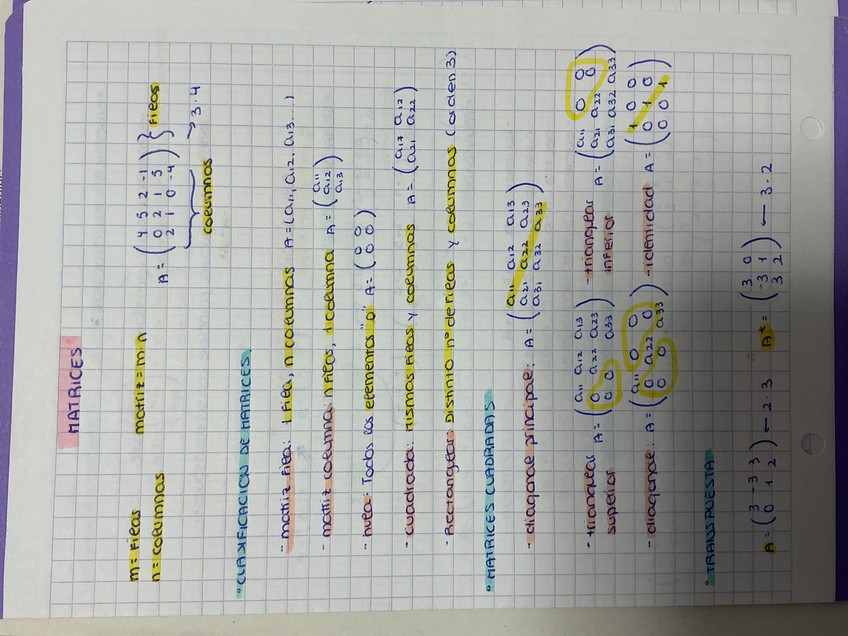 MATRICES
m = Filas
n = columnas
matriz = m · n
A = ( 4 5 2 -1 ) } Filas
0 2 1 5
2 1 0 -4
columnas
→ 3·4
° CLASIFICACIÓN DE MATRICES.
- matriz Fila: 1 Fila, n columnas A = (a11, a12, a13....)
- matriz columna: n Filas, 1 columna A = ( a11
a12
a13 )
- nula: Todos los elementos "0" A = ( 0 0
0 0 )
- cuadrada: mismas Filas y columnas A = ( a11 a12
a21 a22 )
- Rectangular: Distinto nº de Filas y columnas (orden 3)
° MATRICES CUADRADAS
- diagonal principal: A = ( a11 a12 a13
a21 a22 a23
a31 a32 a33 )
- triangular superior A = ( a11 a12 a13
0 a22 a23
0 0 a33 )
- triangular inferior A = ( a11 0 0
a21 a22 0
a31 a32 a33 )
- diagonal: A = ( a11 0 0
0 a22 0
0 0 a33 )
- identidad A = ( 1 0 0
0 1 0
0 0 1 )
° TRANSPUESTA
A = ( 3 -3 3
0 1 2 ) ← 2·3
At = ( 3 0
-3 1
3 2 ) ← 3·2